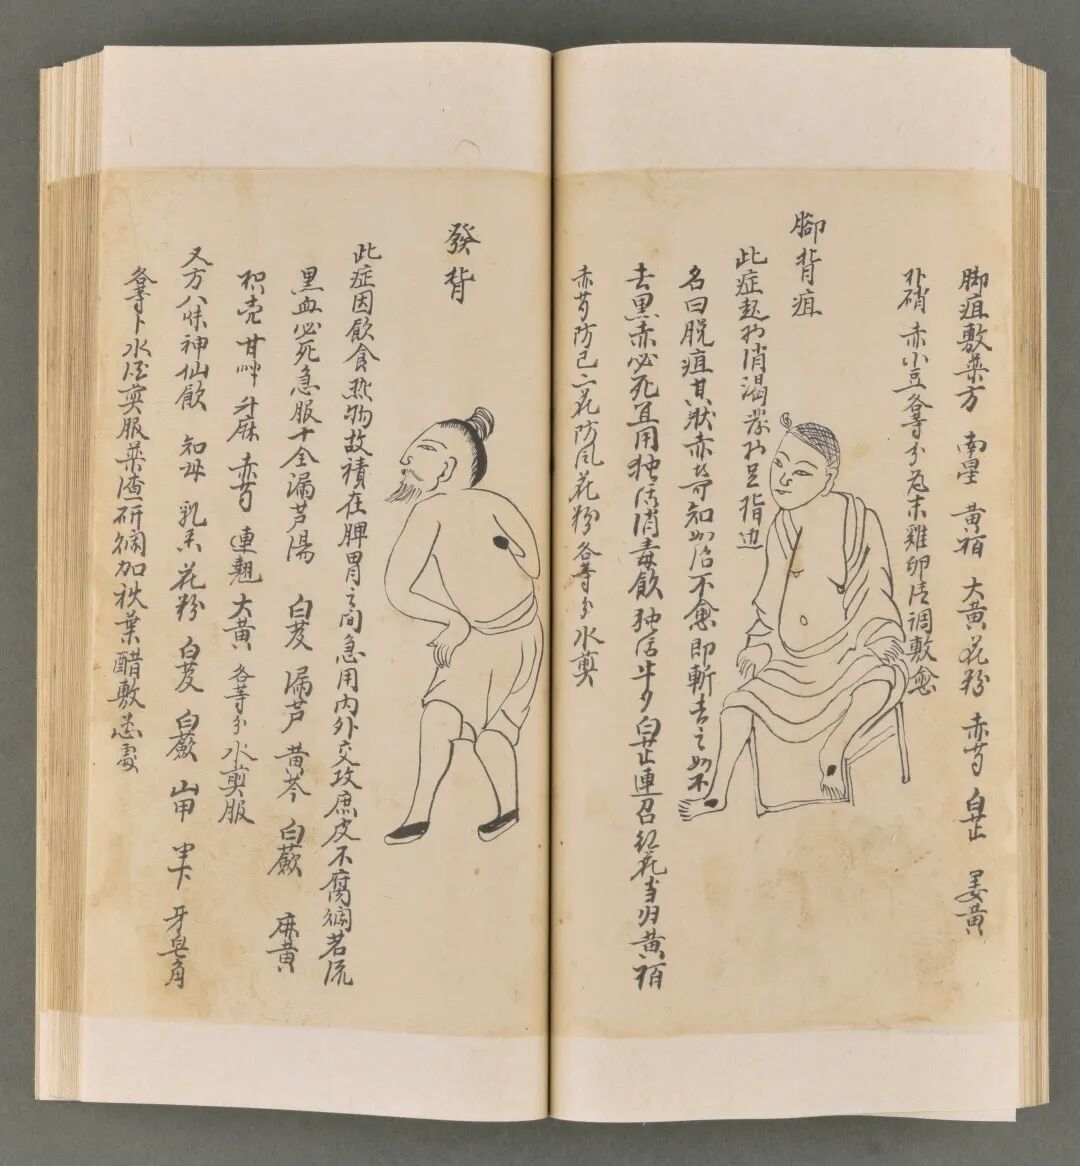 脚疽敷藥方 南星 黄栢 大黄 花粉 赤芍 白芷 姜黄
朴硝 赤小豆 各等分 為末雞卵清調敷愈
腳背疽
此症起於消渴發於足指边
名曰脱疽其狀赤 如治不愈即斬去之如不
去黒赤必死宜用独活消毒飲 独活 牛夕 白芷 連召 红花 当归 黄栢
赤芍 防己 二花 防风 花粉 各等分水煎
發背
此症因飲食热物故積在脾胃之间急用内外交攻庶皮不腐爛若流
黒血必死急服十全漏芦湯 白芨 漏芦 黄芩 白蕨 麻黄
枳壳 甘艸 升麻 赤芍 連翹 大黄 各等分水煎服
又方八味神仙飲 知母 乳香 花粉 白芨 白蕨 山甲 半下 牙皂角
各等卜水酒煎服藥渣研爛加秋葉醋敷患處